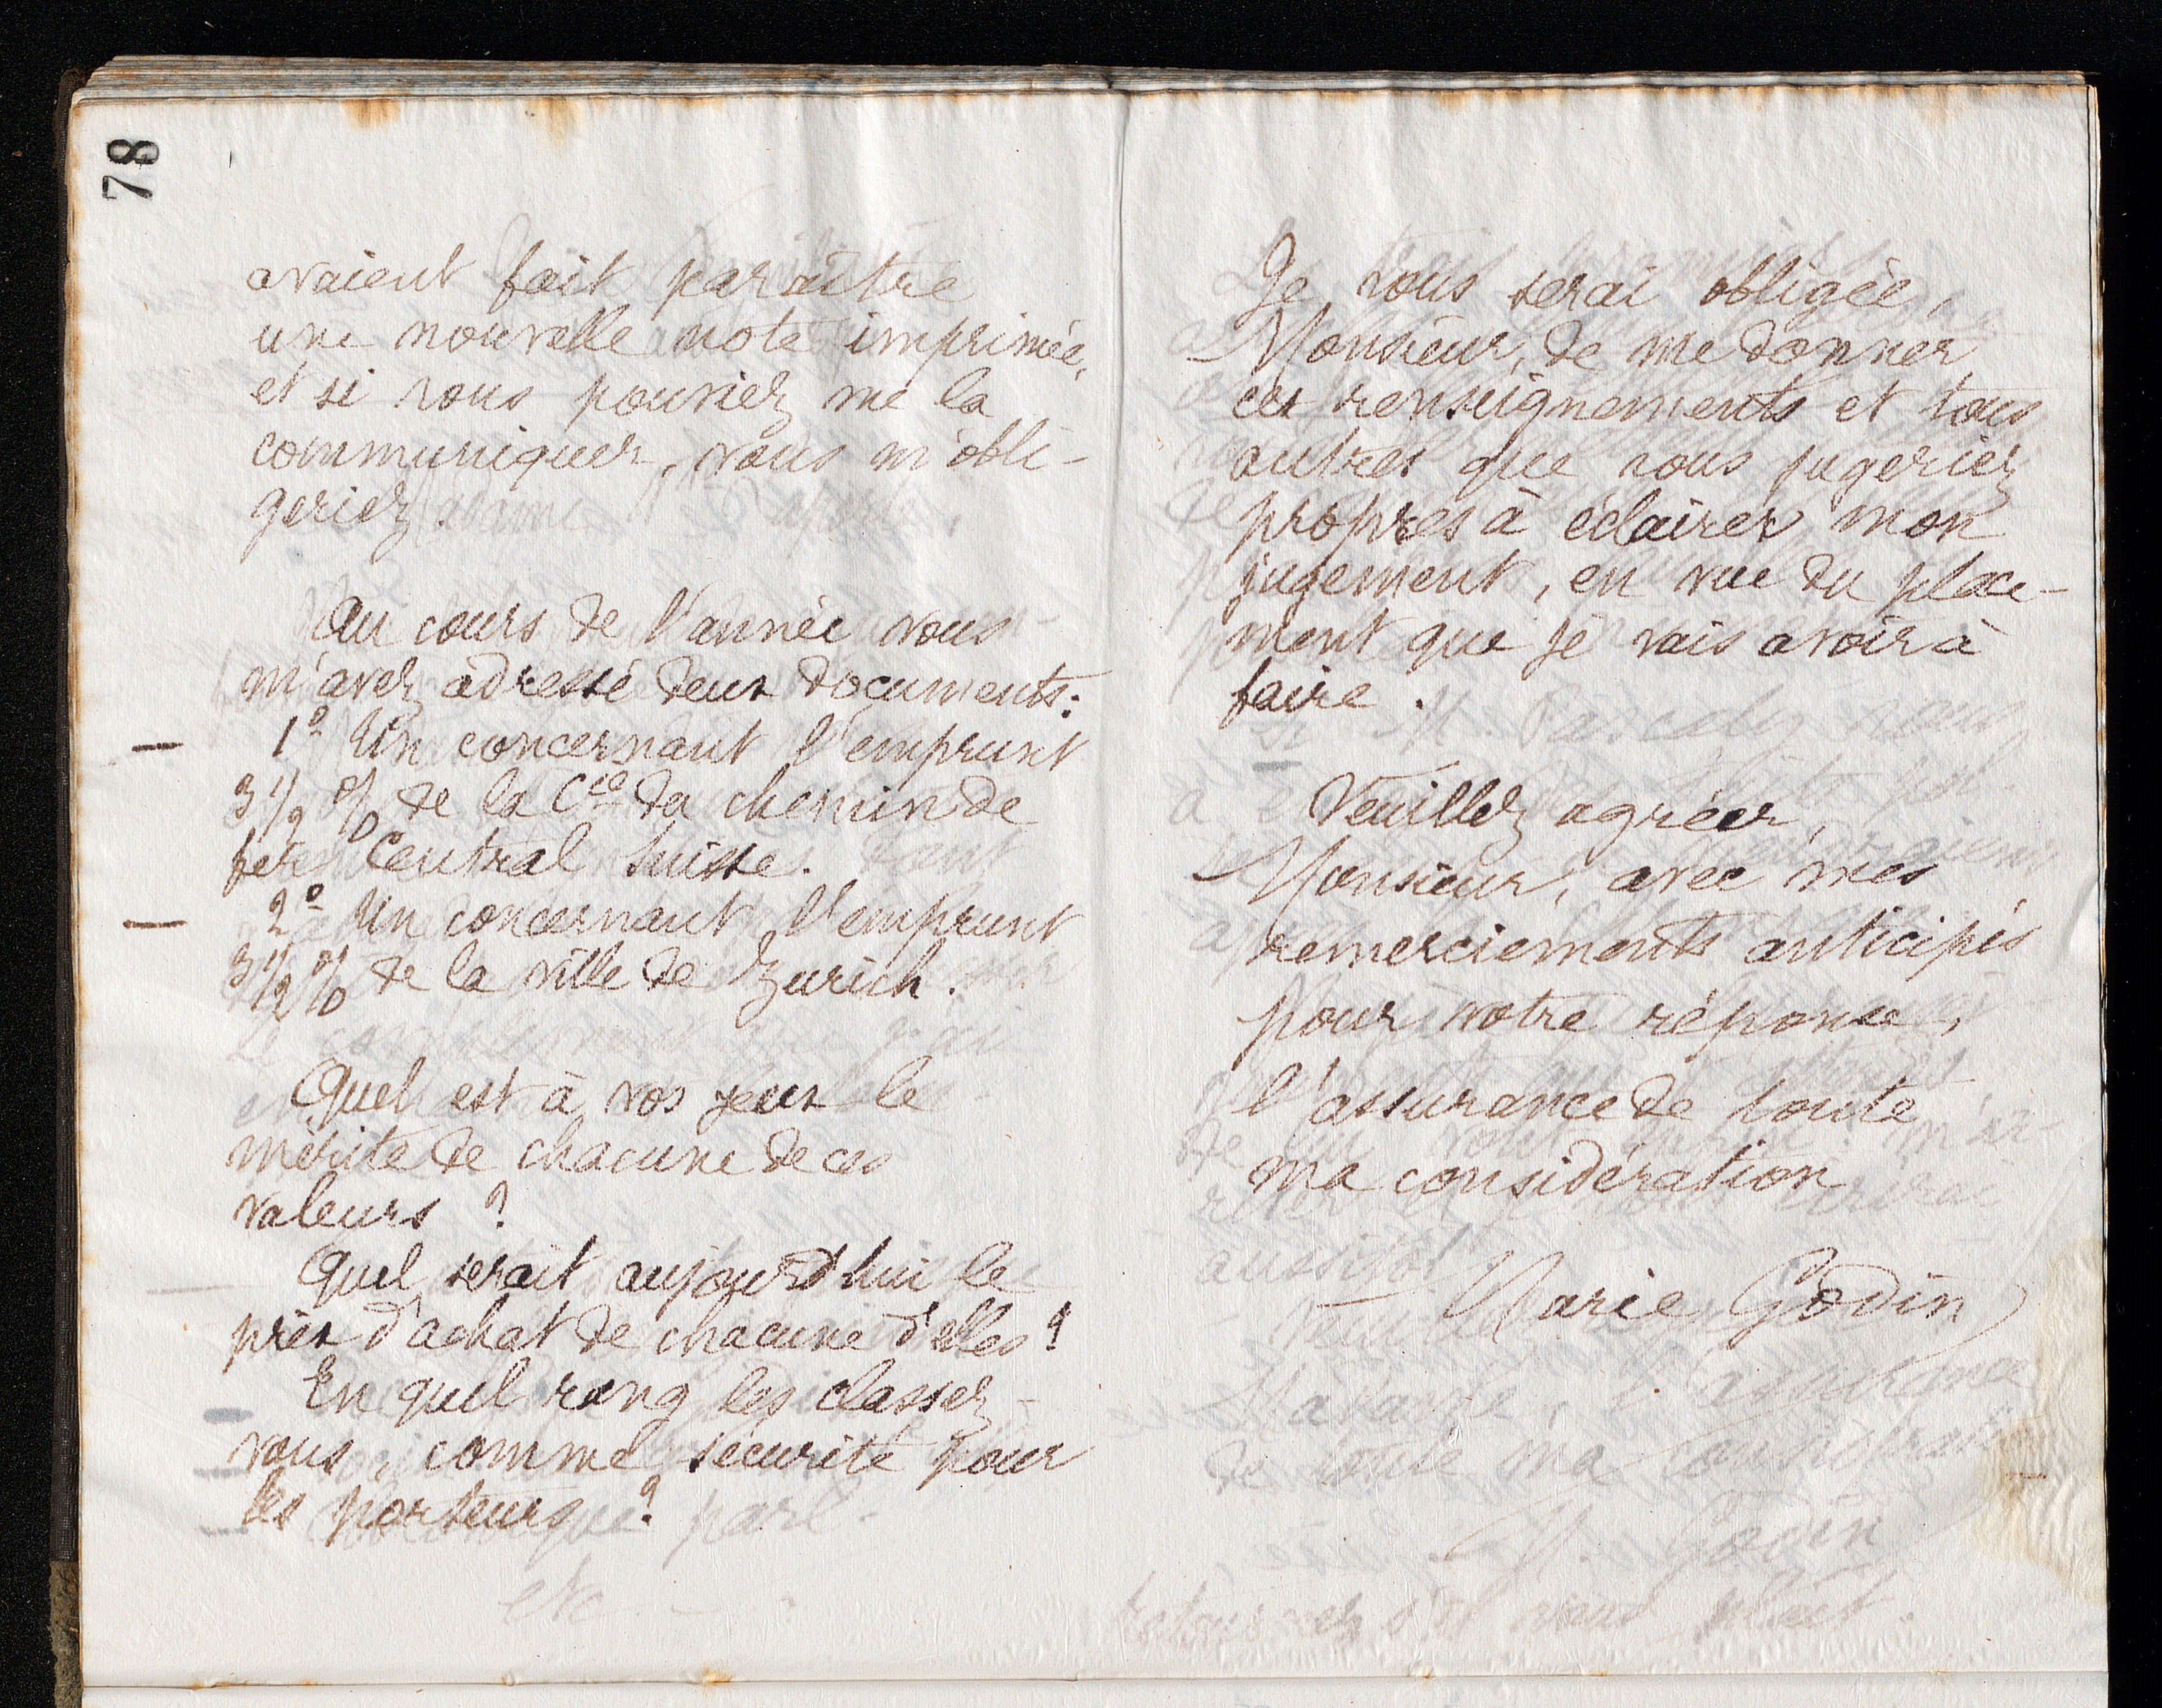 78
avaient fait paraître
une nouvelle note imprimée,
et si vous pouviez me la
communiquer, vous m'obli-
geriez.
Au cours de l'année vous
m'avez adressé deux documents:
1º Un concernant l'emprunt
3 1/2 % de la Cie du chemin de
fer Central Suisse.
2º Un concernant l'emprunt
3 1/2 % de la ville de Zurich.
Quel est à vos yeux le
mérite de chacune de ces
valeurs ?
Quel serait aujourd'hui le
prix d'achat de chacune d'elles ?
En quel rang les classez-
vous, comme sécurité pour
les porteurs ?
Je vous serai obligée,
Monsieur, de me donner
ces renseignements et tous
autres que vous jugeriez
propres à éclairer mon
jugement, en vue du place-
ment que je vais avoir à
faire.
Veuillez agréer,
Monsieur, avec mes
remerciements anticipés
pour votre réponse,
l'assurance de toute
ma considération
Marie Godin